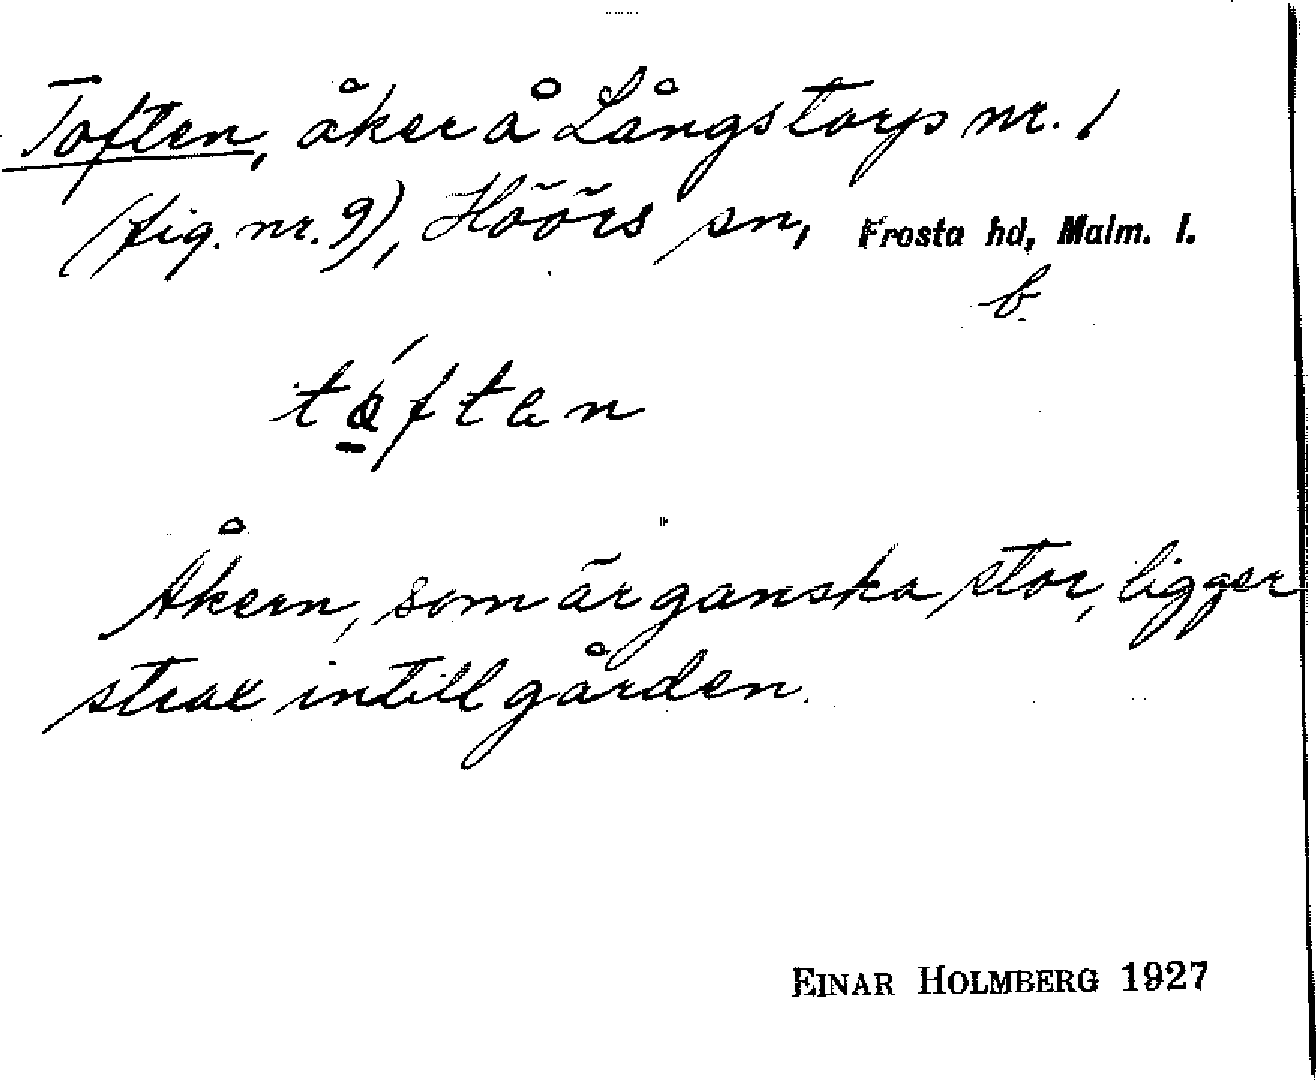 Toften, åker å Långstorp nr. 1
(fig. nr. 9), Höörs sn, Frosta hd, Malm. l.
b.
Åkern, som är ganska stor, ligger
strax intill gården.
EINAR HOLMBERG 1927